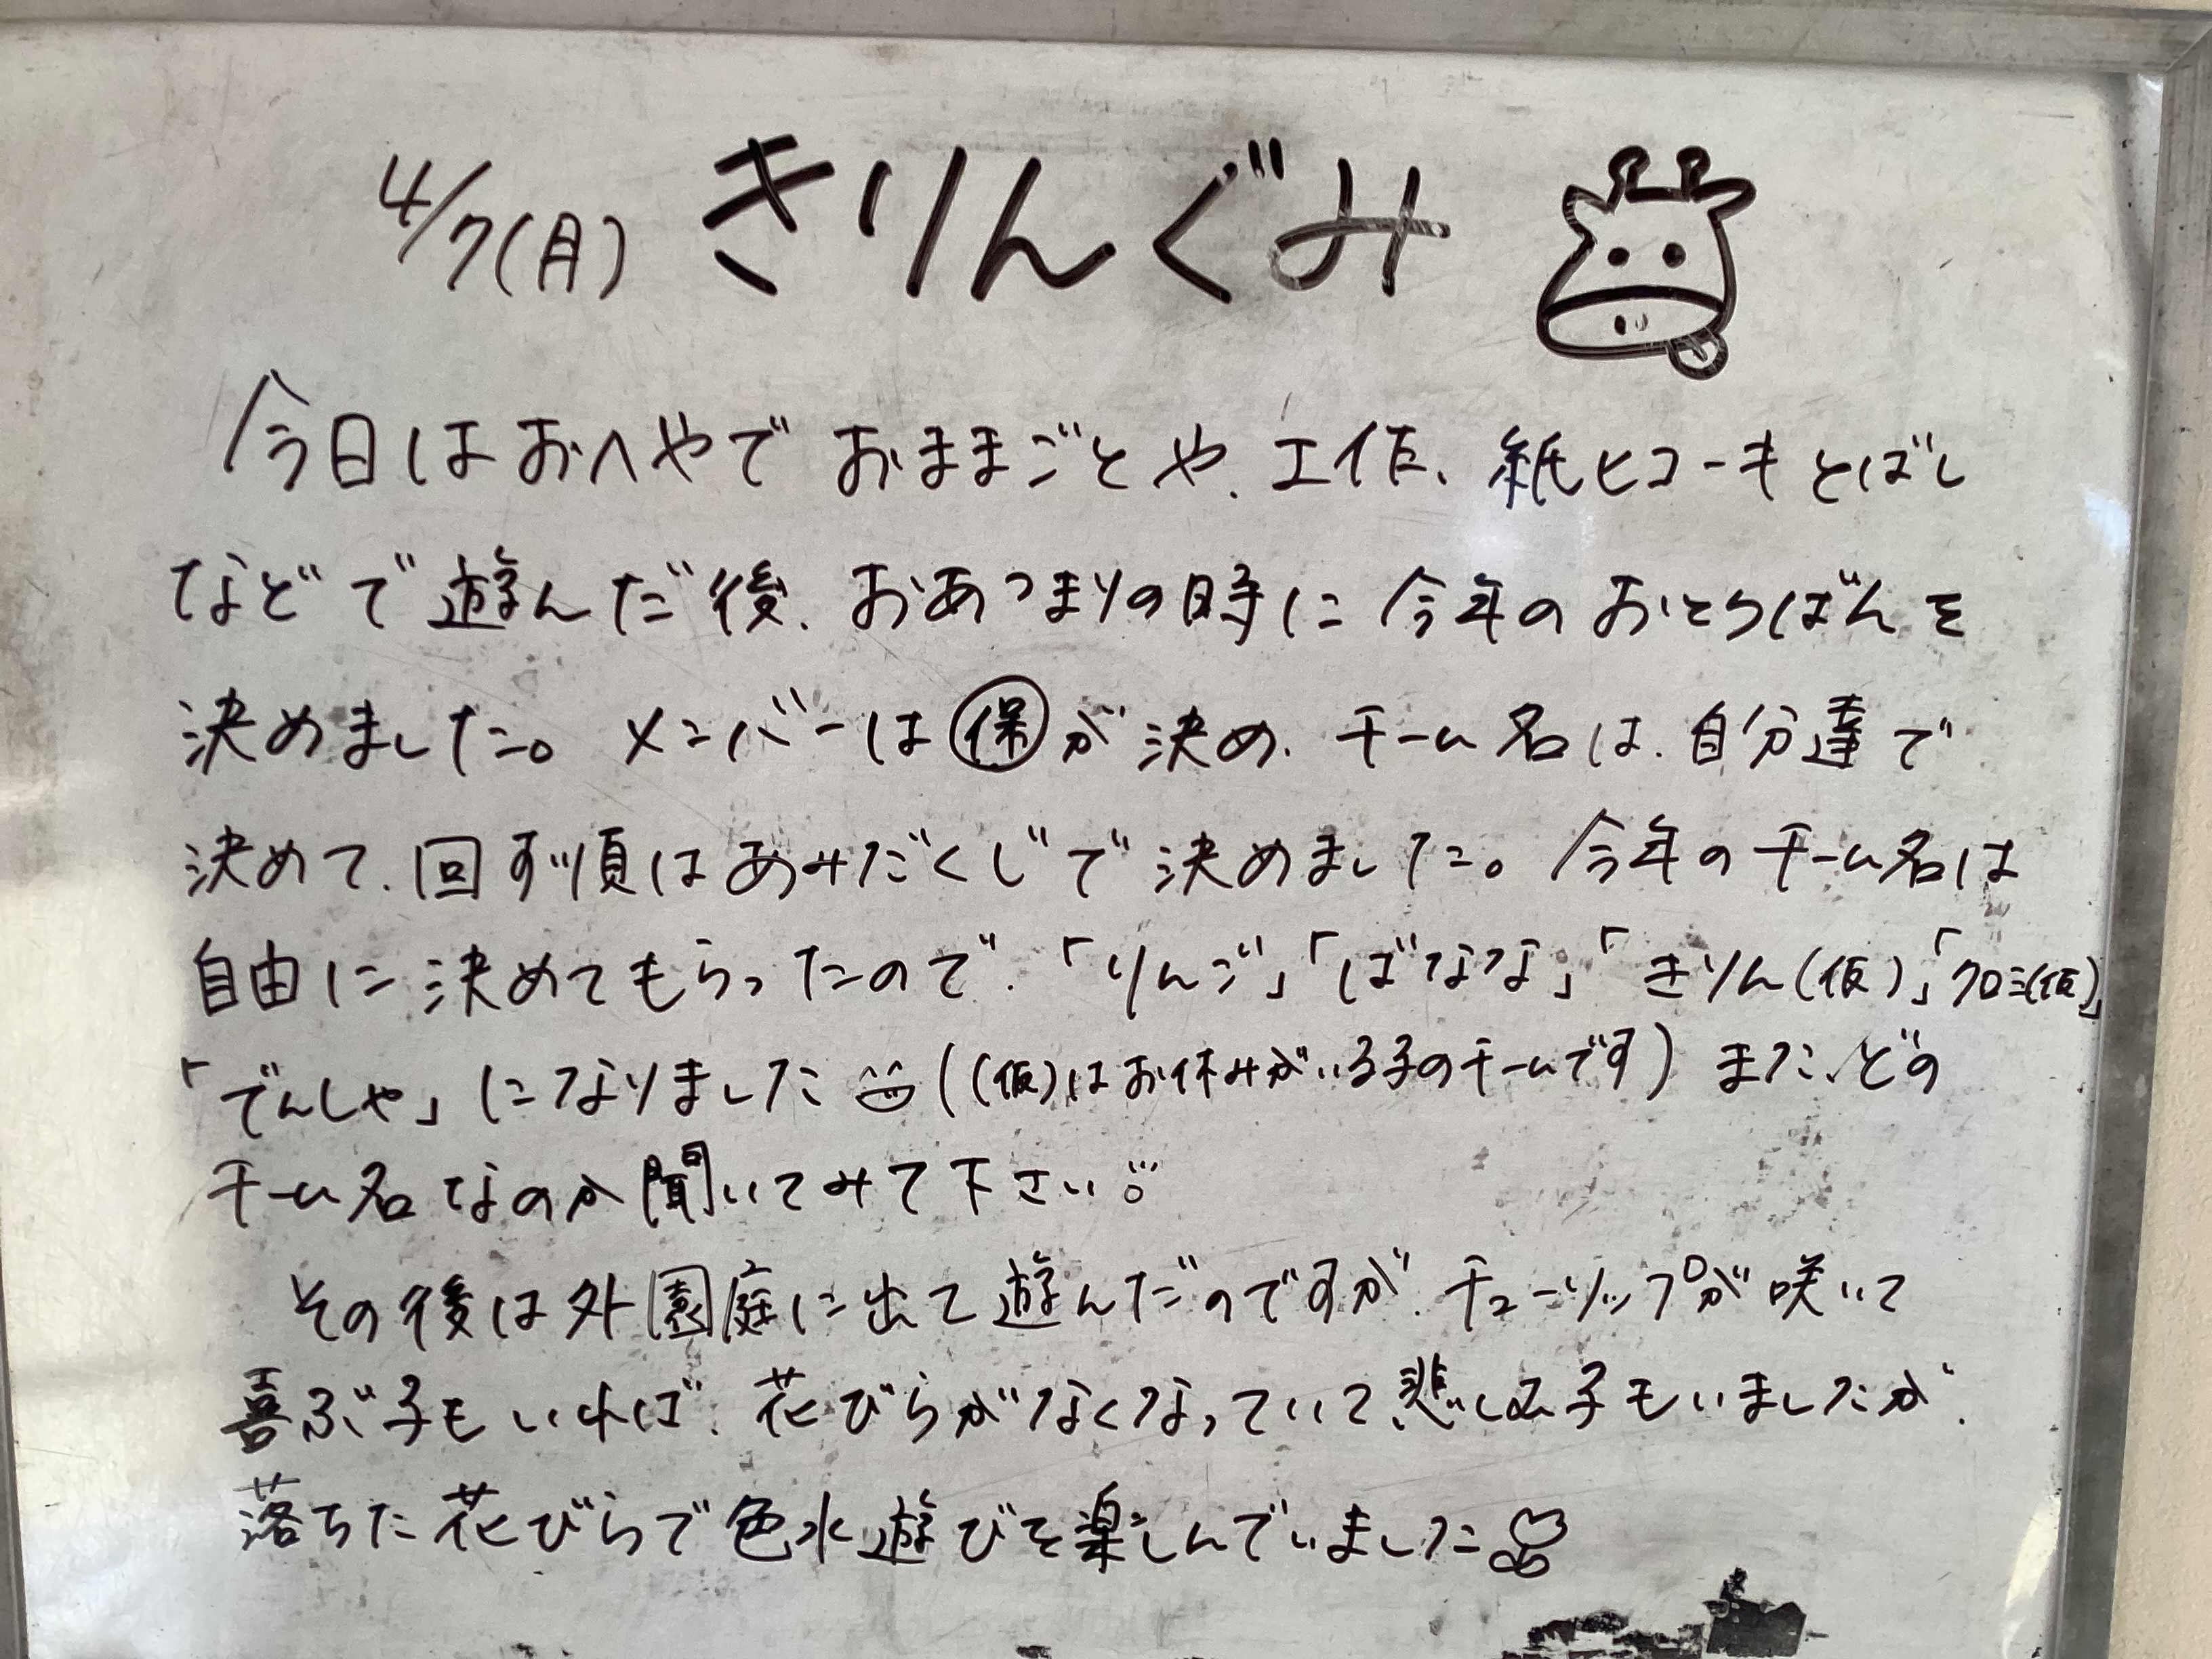 4/7(月) きりんぐみ
今日はおへやでおままごとや、工作、紙ヒコーキとばし
などで遊んだ後、おあつまりの時に今年のおとうばんを
決めました。メンバーは㋭が決め、チーム名は、自分達で
決めて、回す順はあみだくじで決めました。今年のチーム名は
自由に決めてもらったので、「りんご」「ばなな」「きりん(仮)」「クロミ(仮)」
「でんしゃ」になりました((仮)はお休みがいる子のチームです)また、どの
チーム名なのか聞いてみて下さい。
その後は外園庭に出て遊んだのですが、チューリップが咲いて
喜ぶ子もいれば、花びらがなくなっていて、悲しむ子もいましたが、
落ちた花びらで色水遊びを楽しんでいました